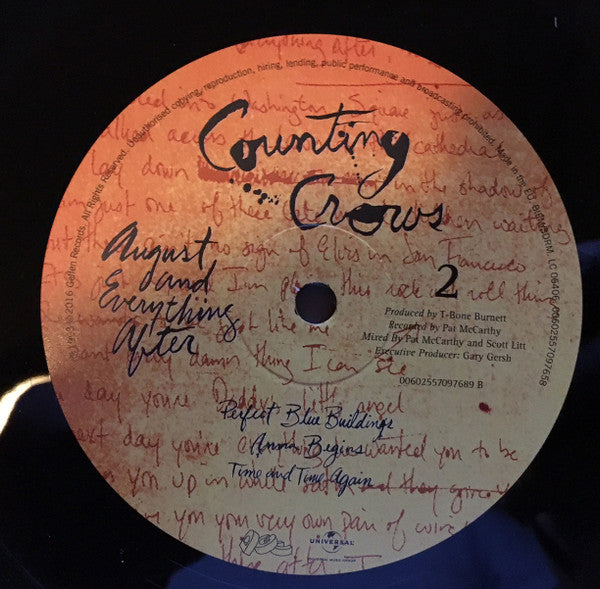 Unauthorised copying, reproduction, hiring, lending, public performance and broadcasting prohibited. Made in the EU. BIEM/SDRM. LC 06406. 00602557097658
1993 ℗ © 2016 Geffen Records. All Rights Reserved.
Counting
Crows
August
and
Everything
After
2
Produced by T-Bone Burnett
Recorded by Pat McCarthy
Mixed By Pat McCarthy and Scott Litt
Executive Producer: Gary Gersh
00602557097689 B
everything after
Washington Square just as
walked across the cathedral
lay down in the shadow of
just one of these when waiting
sign of Elvis in San Francisco
this rock and roll thing
just like me
damn thing I can see
day you're Daddy's little angel
next day you're wanted you to be
you up in and they gave
you your very own pair of
after I
Perfect Blue Buildings
Anna Begins
Time and Time Again
UNIVERSAL
UNIVERSAL MUSIC GROUP